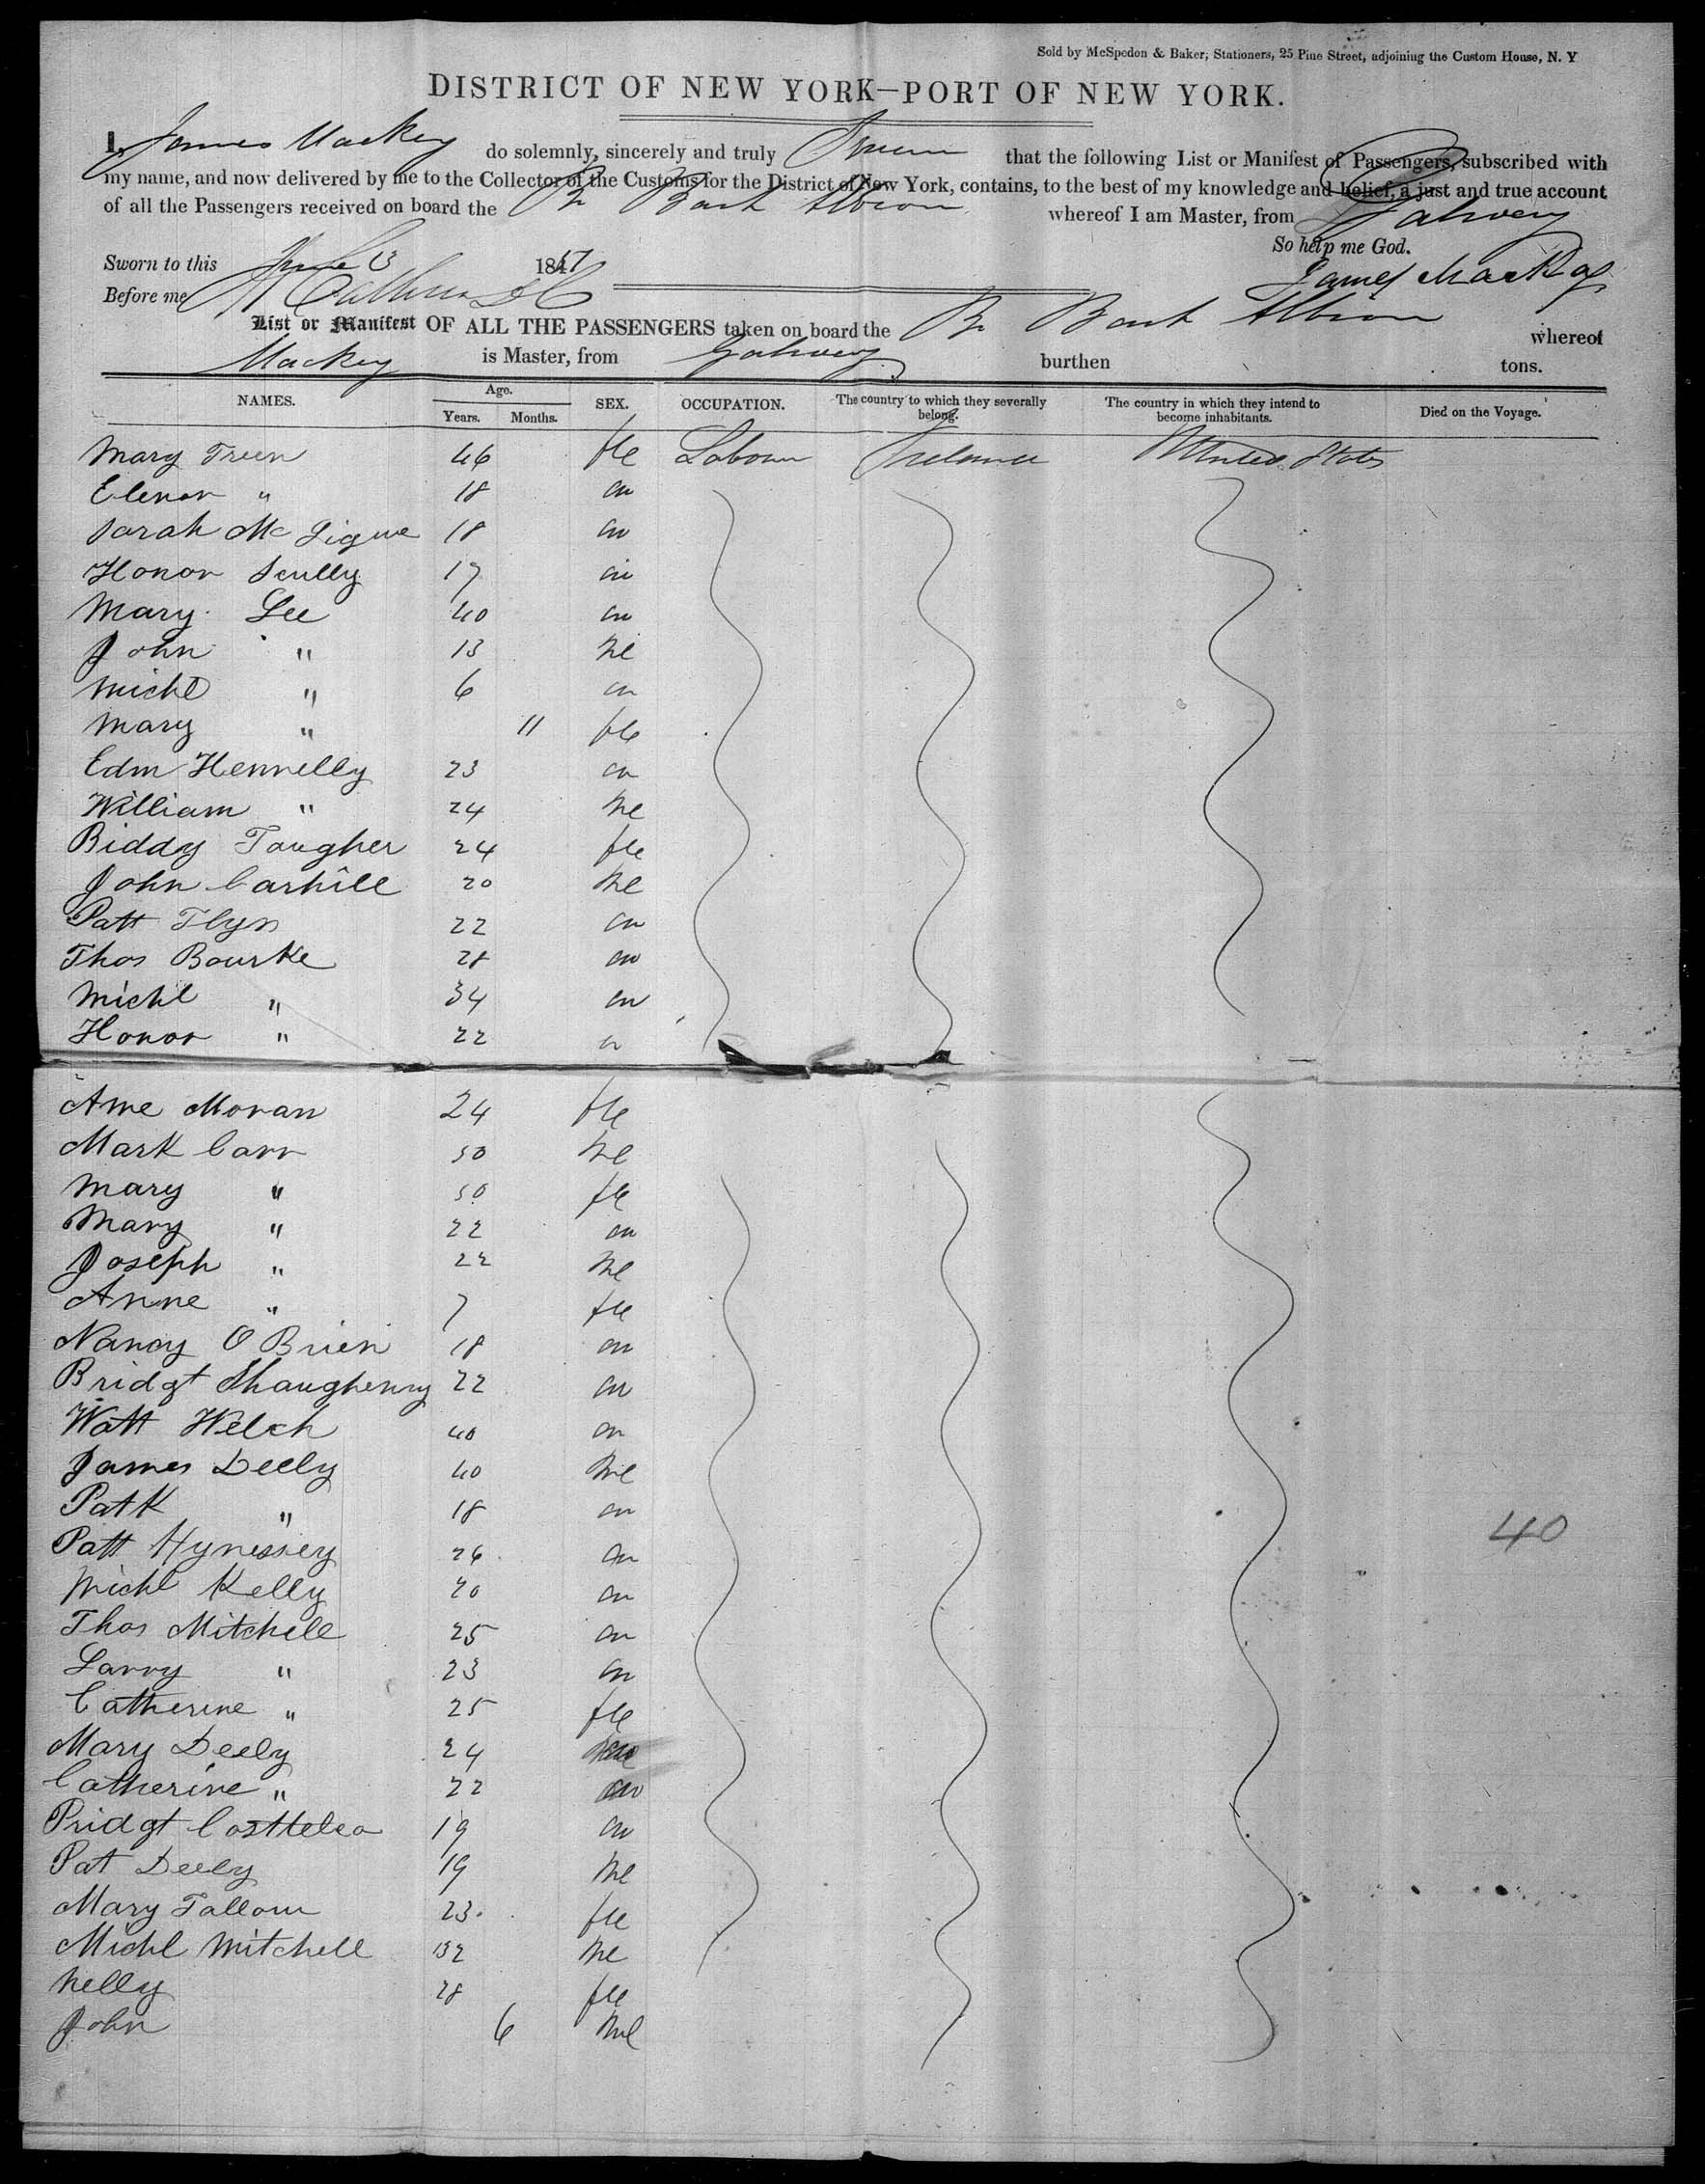 Sold by McSpedon & Baker, Stationers, 25 Pine Street, adjoining the Custom House, N. Y
DISTRICT OF NEW YORK—PORT OF NEW YORK.
I, James Mackey do solemnly, sincerely and truly Swear that the following List or Manifest of Passengers, subscribed with
my name, and now delivered by me to the Collector of the Customs for the District of New York, contains, to the best of my knowledge and belief, a just and true account
of all the Passengers received on board the Br Bark Albion whereof I am Master, from Galway
So help me God.
Sworn to this June 1847 James Mackay
Before me
List or Manifest OF ALL THE PASSENGERS taken on board the Br Bark Albion whereof
Mackey is Master, from Galway burthen tons.
NAMES. Age. Years. Months. SEX. OCCUPATION. The country to which they severally belong. The country in which they intend to become inhabitants. Died on the Voyage.
Mary 46 fle Labour Ireland United States
Elenor " 18 "
Sarah Mc Tigue 18 "
Honor Scully 17 "
Mary Lee 40 "
John " 13 Me
Michl " 6 "
Mary " 11 fle
Edm Hennelly 23 "
William " 24 Me
Biddy Taugher 24 fle
John Carhill 20 Me
Patt Flyn 22 "
Thos Bourke 28 "
Michl " 34 "
Honor " 22 "
Ane Moran 24 fle
Mark Carr 50 Me
Mary " 50 fle
Mary " 22 "
Joseph " 22 Me
Anne " 7 fle
Nancy O Brien 18 "
Bridgt Shaughenny 22 "
Watt Welch 40 "
James Deely 40 Me
Patk " 18 "
Patt Hynessey 26 "
Michl Kelly 20 "
Thos Mitchell 25 "
Larry " 23 "
Catherine " 25 fle
Mary Deely 24
Catherine " 22 "
Pridgt Costteloa 19 "
Pat Deely 19 Me
Mary Fallom 23 fle
Michl Mitchell 32 Me
Nelly 28 fle
John 6 Me
40